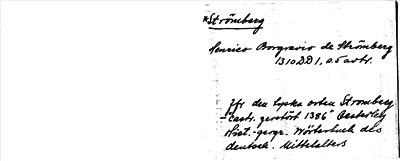 *Strömberg
Henrico Borgravio de Strömberg
1310 DD 1, a.5 avtr.
Jfr den tyska orten Stromberg
"castr. zerstört 1386" Oesterley
Hist.-geogr. Wörterbuch des
deutsch. Mittelalters